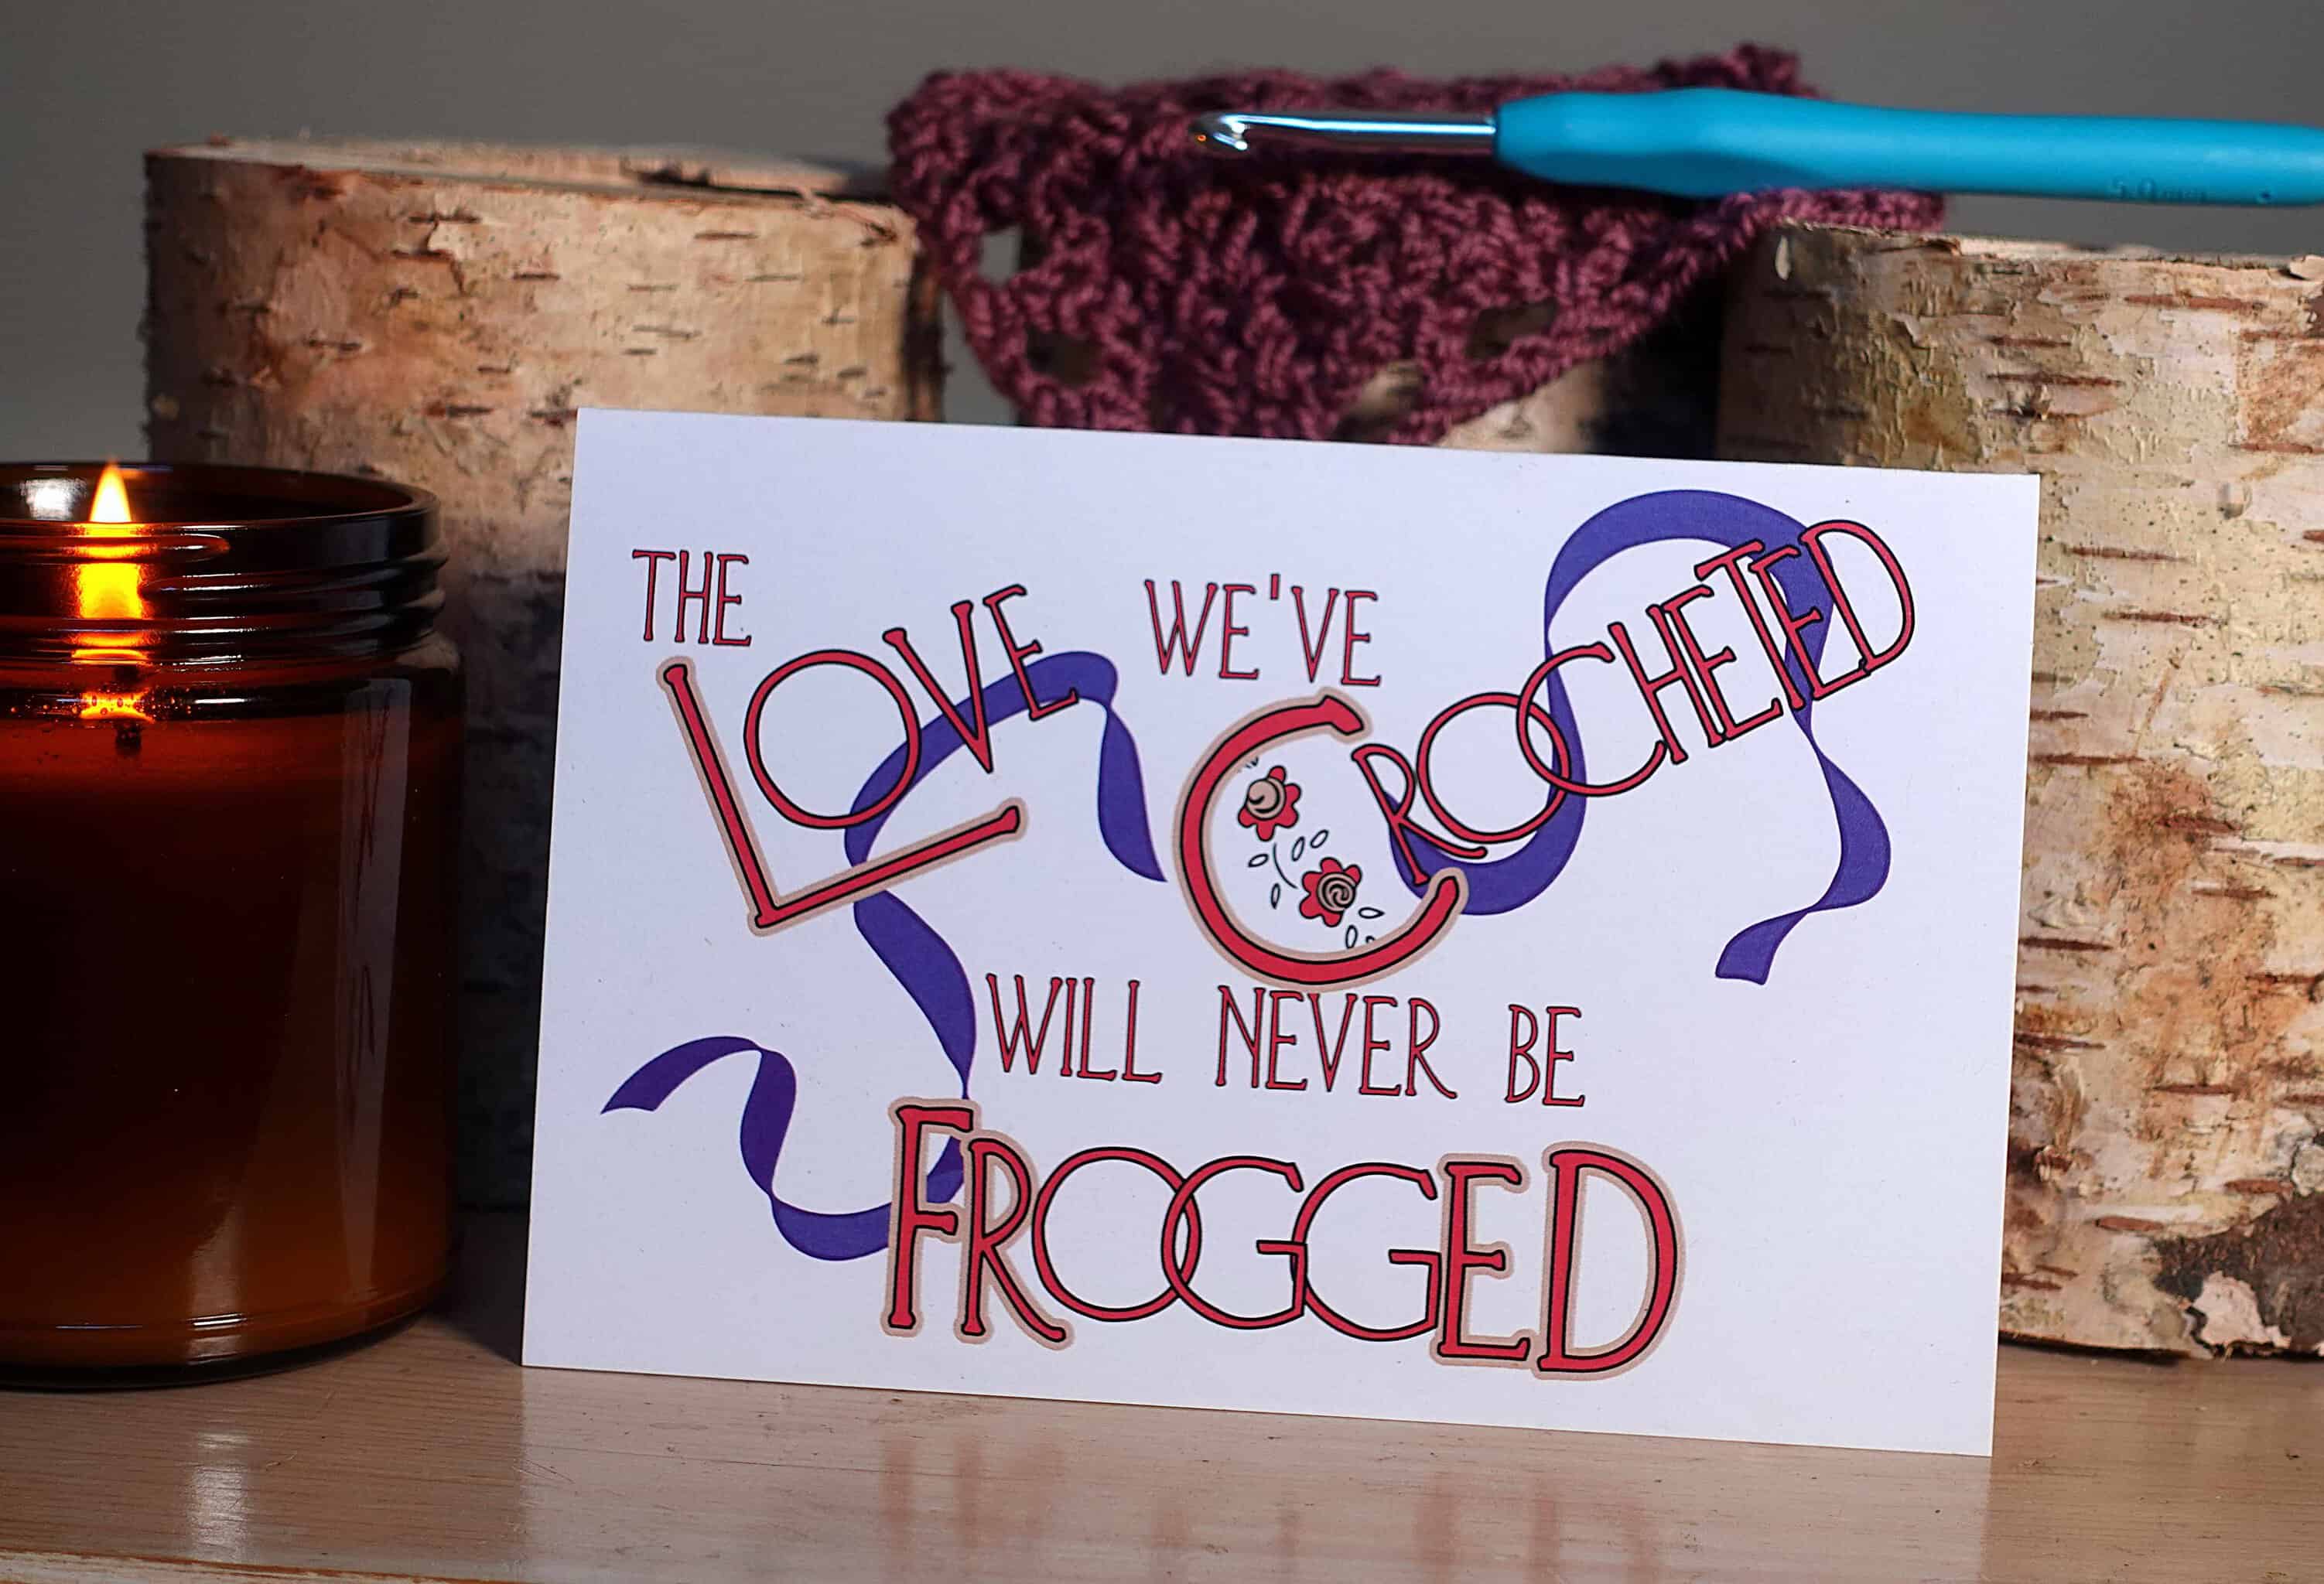 THE LOVE WE'VE CROCHETED
WILL NEVER BE
FROGGED
5.0mm